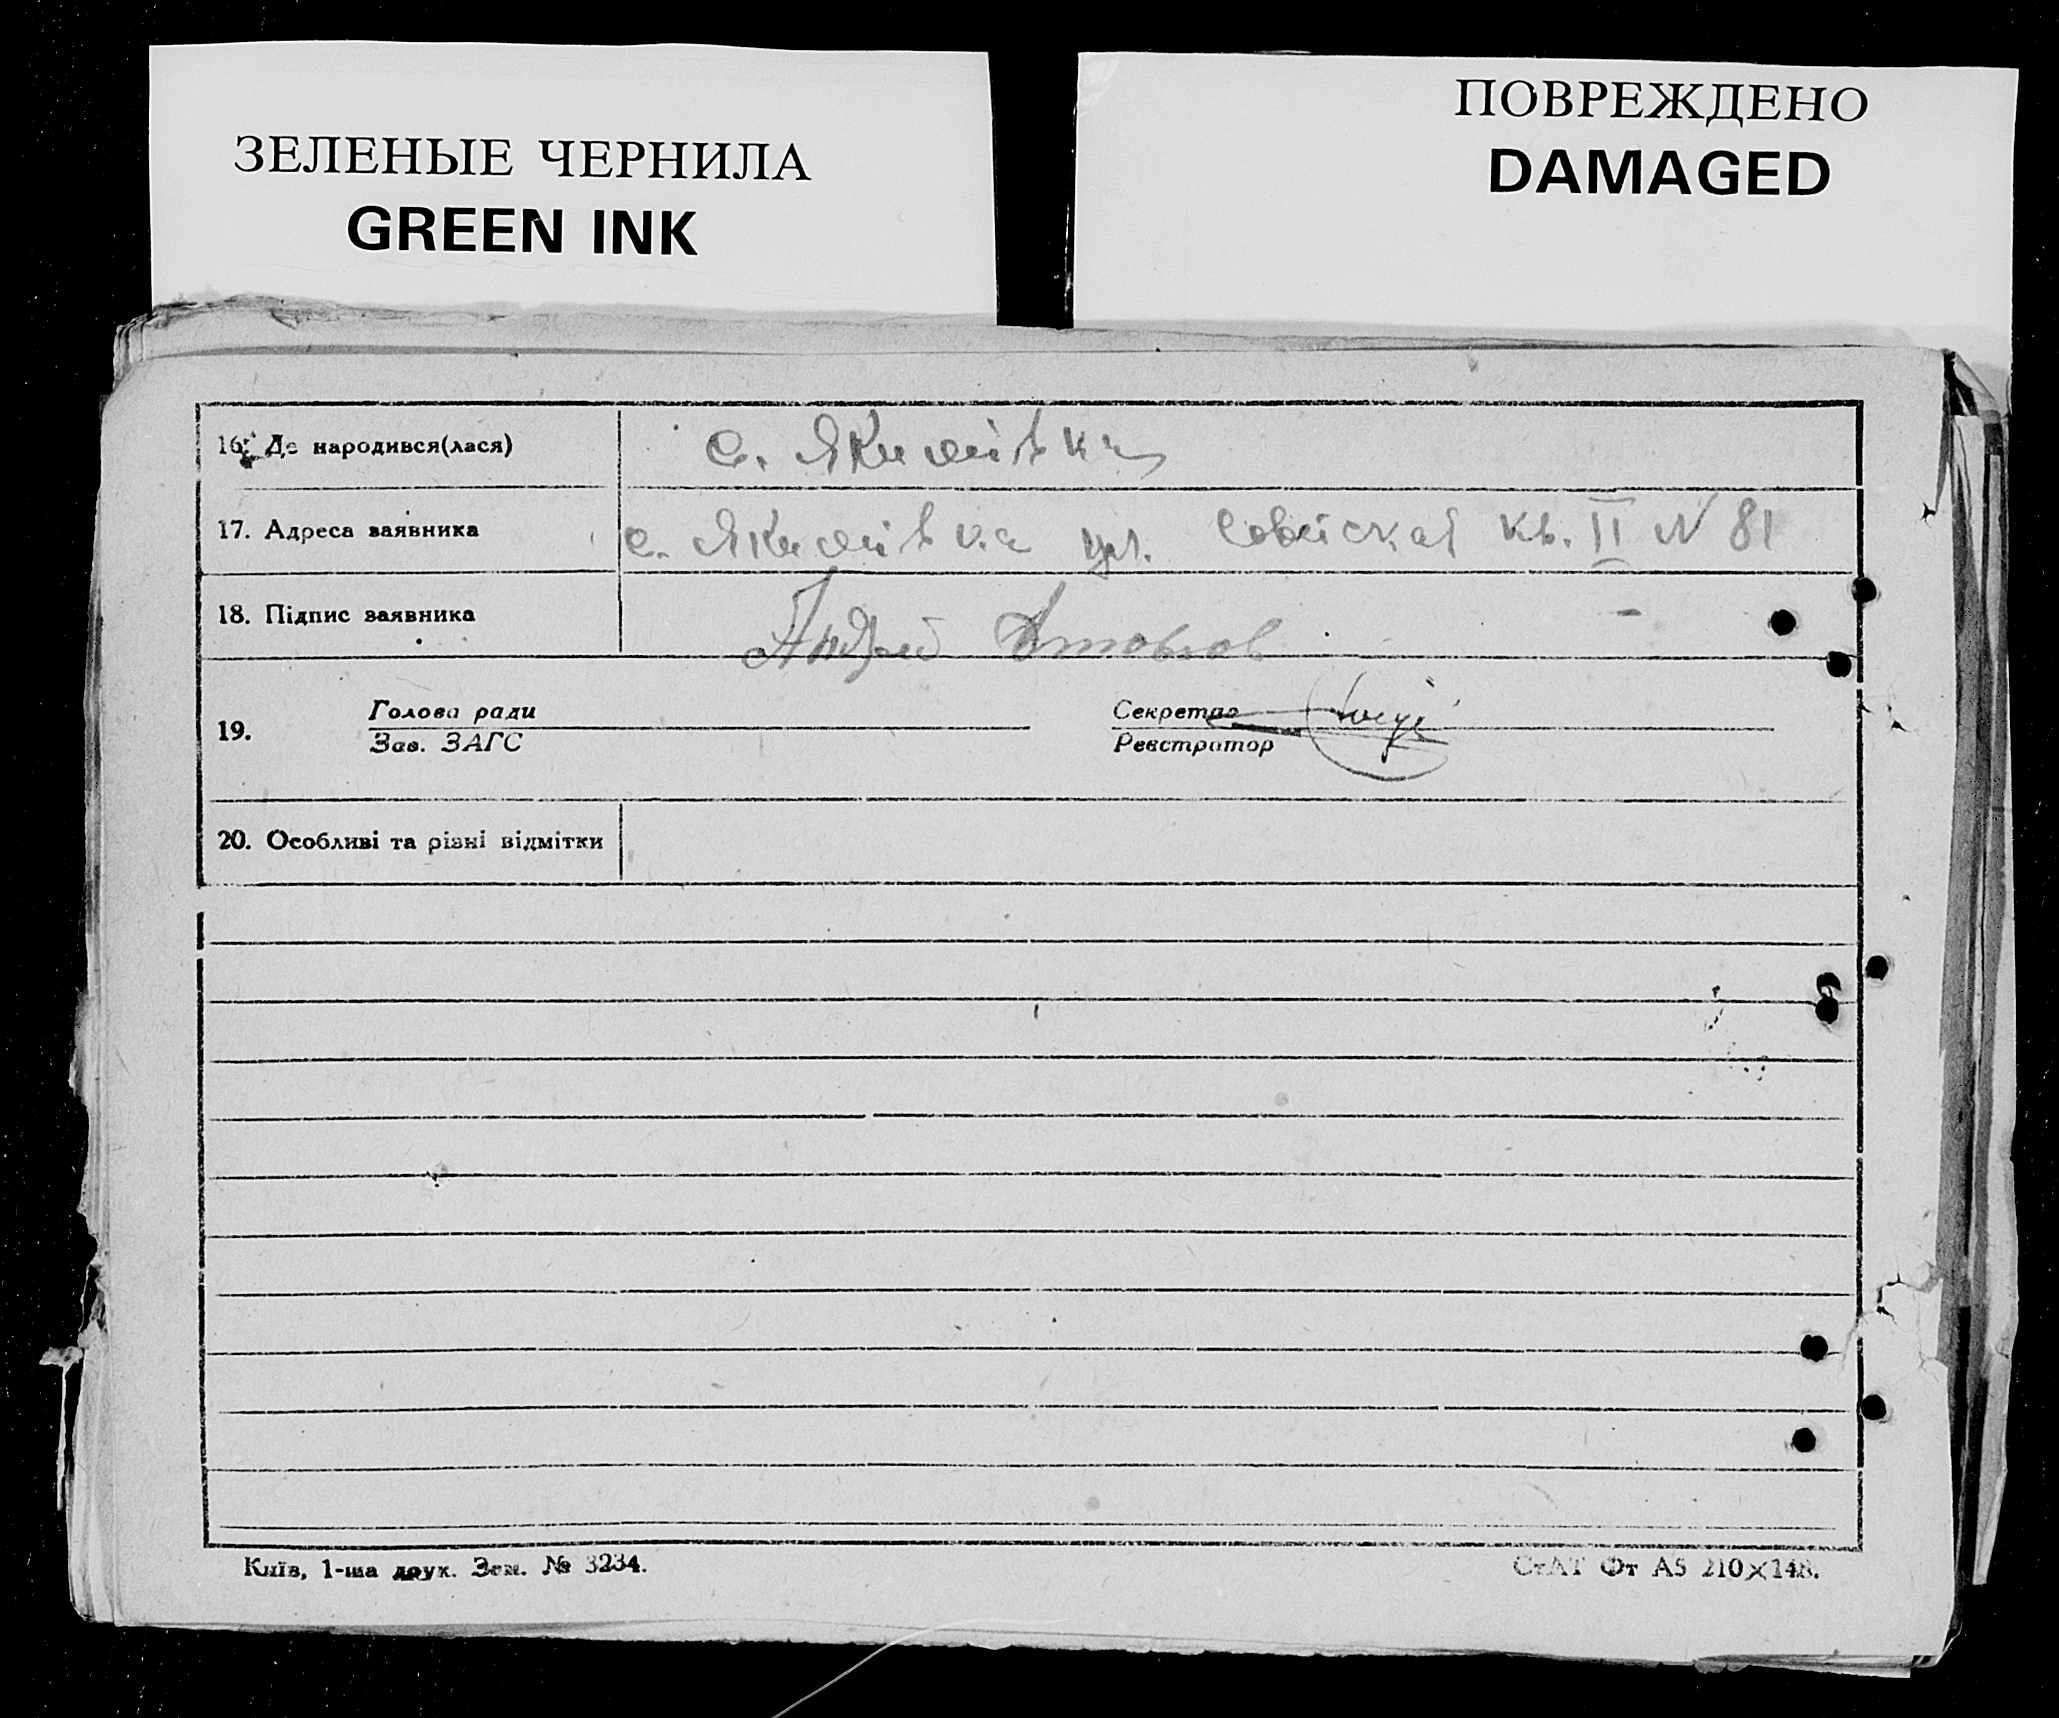 ЗЕЛЕНЫЕ ЧЕРНИЛА
GREEN INK
ПОВРЕЖДЕНО
DAMAGED
16. Де народився(лася) с. Якимівка
17. Адреса заявника с. Якимівка ул. Совіская кв. II N 81
18. Підпис заявника Андрей
19. Голова ради
Зав. ЗАГС
Секретар
Реєстратор
20. Особливі та різні відмітки
Київ, 1-ша друк. Зам. № 3234.
СтАТ Фт А5 210×148.